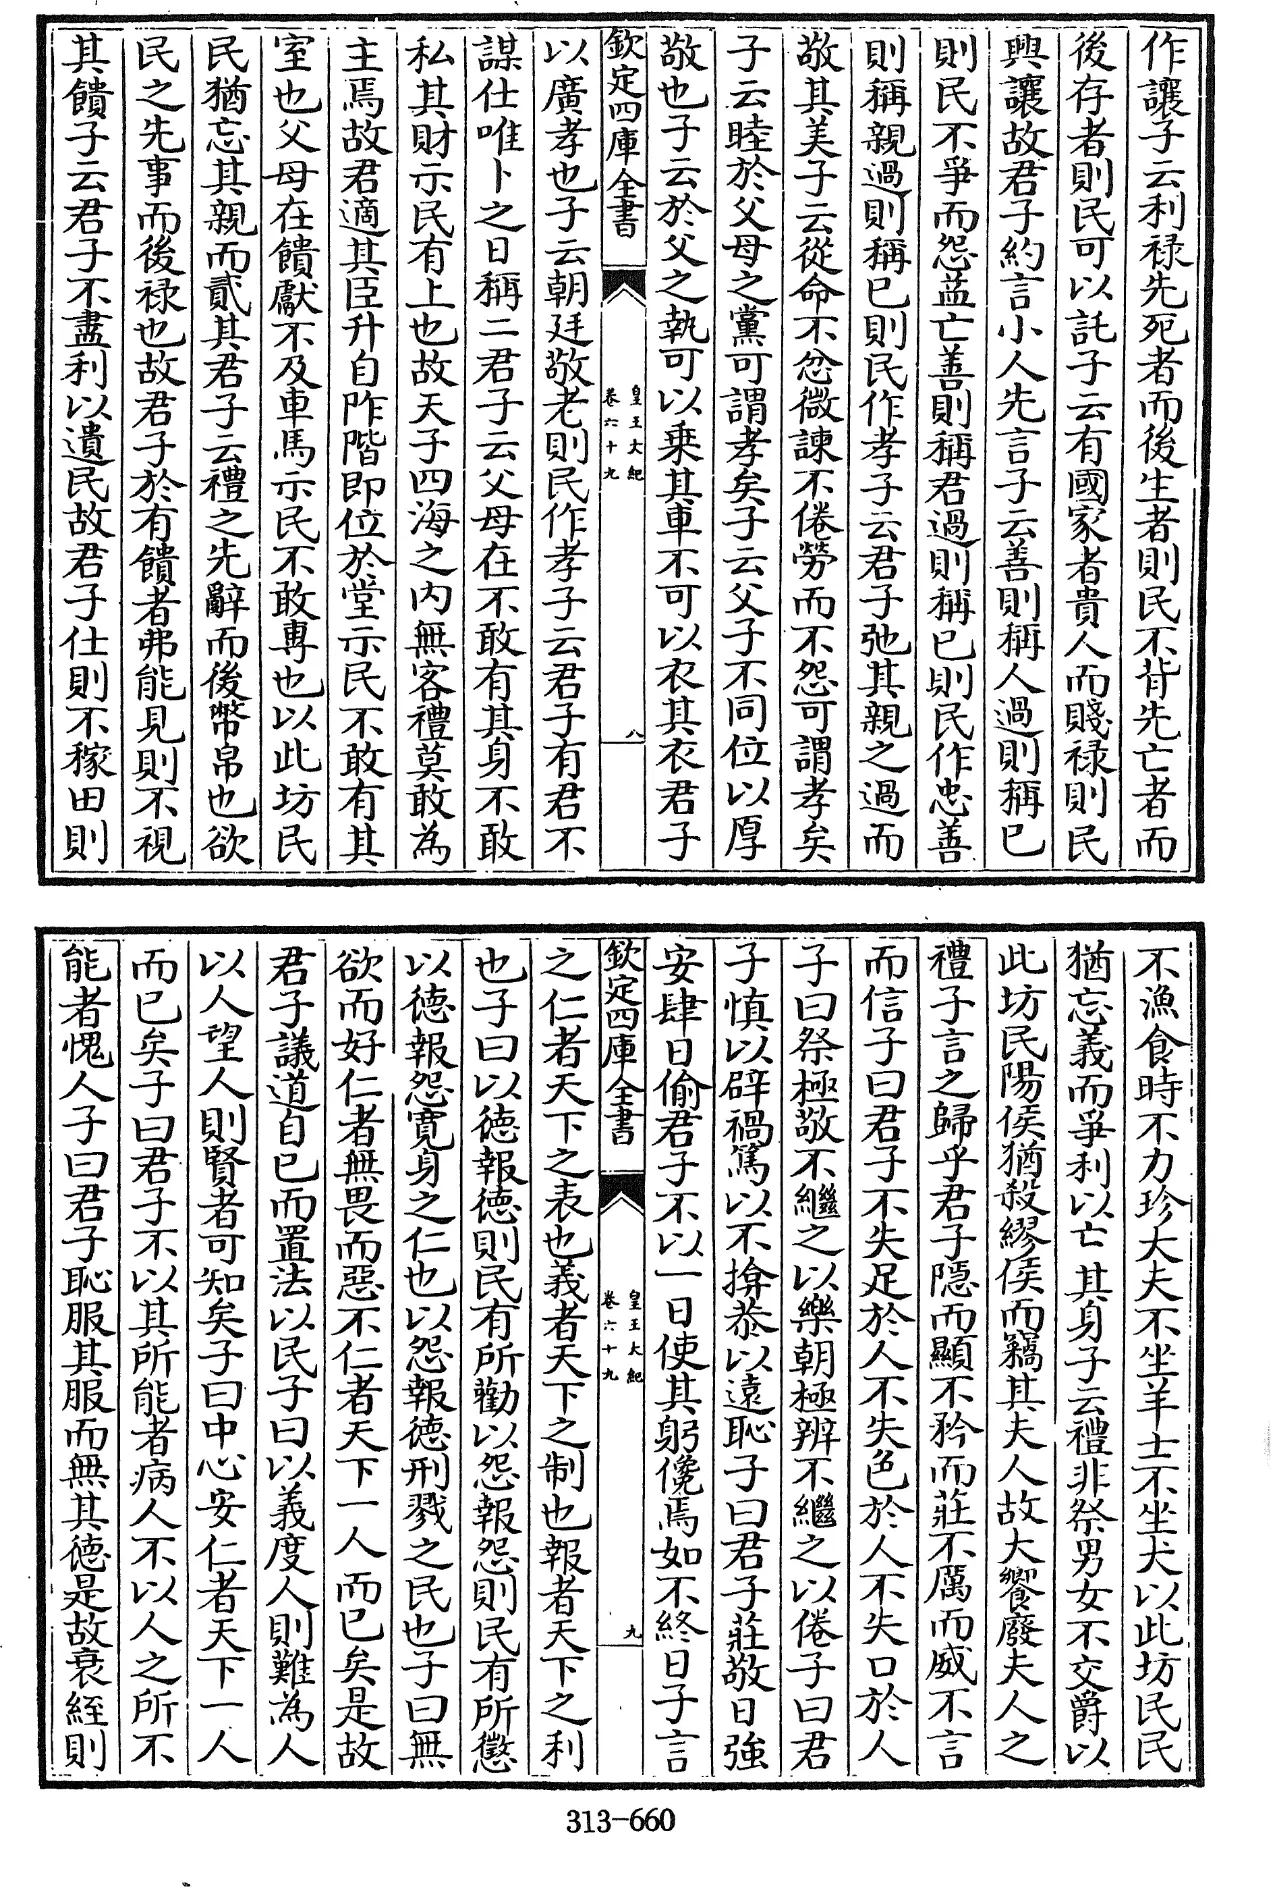 作讓子云利禄先死者而後生者則民不偝先亡者而
後存者則民可以託子云有國家者貴人而賤禄則民
興讓故君子約言小人先言子云善則稱人過則稱已
則民不爭而怨益亡善則稱君過則稱已則民作忠善
則稱親過則稱已則民作孝子云君子弛其親之過而
敬其美子云從命不忿微諫不倦勞而不怨可謂孝矣
子云睦於父母之黨可謂孝矣子云父子不同位以厚
敬也子云於父之執可以乗其車不可以衣其衣君子
欽定四庫全書
皇王大紀
卷六十九
八
以廣孝也子云朝廷敬老則民作孝子云君子有君不
謀仕唯卜之日稱二君子云父母在不敢有其身不敢
私其財示民有上也故天子四海之内無客禮莫敢為
主焉故君適其臣升自阼階即位於堂示民不敢有其
室也父母在饋獻不及車馬示民不敢專也以此坊民
民猶忘其親而貳其君子云禮之先辭而後幣帛也欲
民之先事而後禄也故君子於有饋者弗能見則不視
其饋子云君子不盡利以遺民故君子仕則不稼田則
不漁食時不力珍大夫不坐羊士不坐犬以此坊民民
猶忘義而爭利以亡其身子云禮非祭男女不交爵以
此坊民陽侯猶殺繆侯而竊其夫人故大饗廢夫人之
禮子言之歸乎君子隱而顯不矜而莊不厲而威不言
而信子曰君子不失足於人不失色於人不失口於人
子曰祭極敬不繼之以樂朝極辨不繼之以倦子曰君
子慎以辟禍篤以不揜恭以遠恥子曰君子莊敬日強
安肆日偷君子不以一日使其躬儳焉如不終日子言
欽定四庫全書
皇王大紀
卷六十九
九
之仁者天下之表也義者天下之制也報者天下之利
也子曰以徳報徳則民有所勸以怨報怨則民有所懲
以徳報怨寛身之仁也以怨報徳刑戮之民也子曰無
欲而好仁者無畏而惡不仁者天下一人而已矣是故
君子議道自已而置法以民子曰以義度人則難為人
以人望人則賢者可知矣子曰中心安仁者天下一人
而已矣子曰君子不以其所能者病人不以人之所不
能者愧人子曰君子恥服其服而無其徳是故衰絰則
313-660